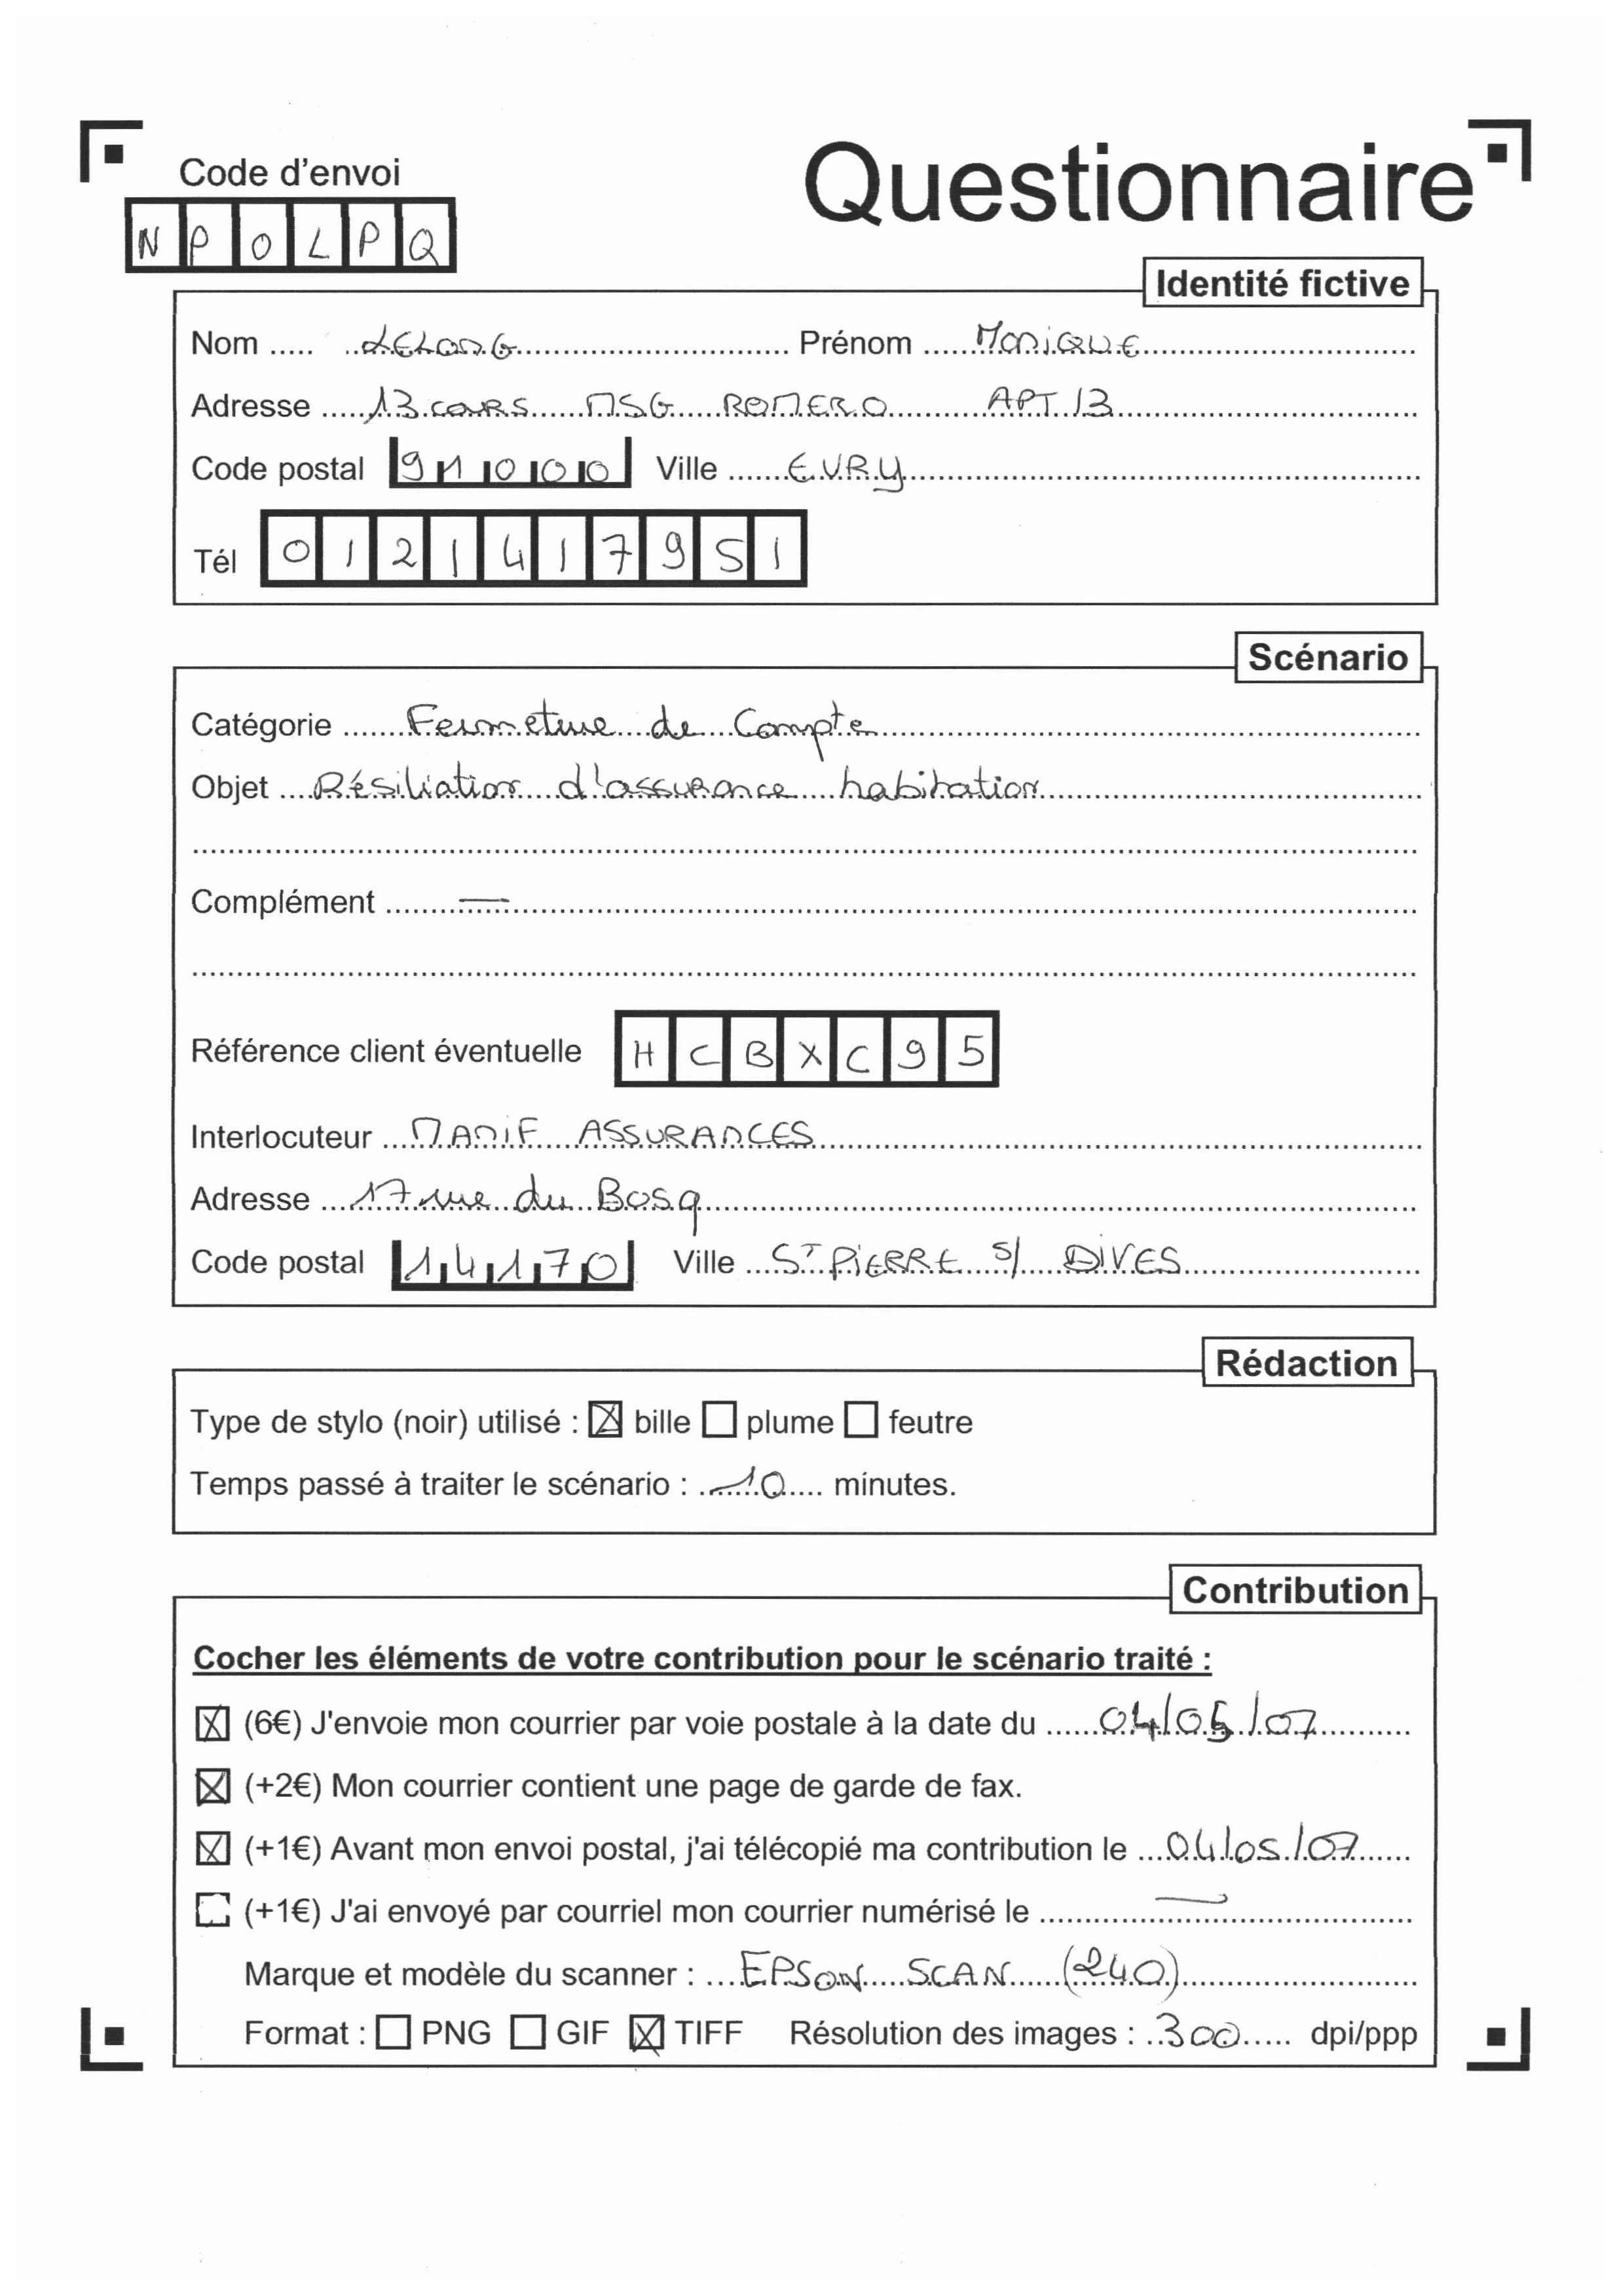 Code d'envoi
Questionnaire
NPOLPQ
Identité fictive
Nom ..... LELONG Prénom ..... MONIQUE
Adresse ..... 13 COURS MSG ROMERO APT 13
Code postal 91000 Ville ..... EVRY
Tél 0121417951
Scénario
Catégorie ..... Fermeture de Compte
Objet ..... Résiliation d'assurance habitation
Complément ..... —
Référence client éventuelle HCBXC95
Interlocuteur ..... MANIF ASSURANCES
Adresse ..... 17 rue du Bosq
Code postal 14170 Ville ..... ST PIERRE S/ DIVES
Rédaction
Type de stylo (noir) utilisé : ☒ bille ☐ plume ☐ feutre
Temps passé à traiter le scénario : 10 minutes.
Contribution
Cocher les éléments de votre contribution pour le scénario traité :
☒ (6€) J'envoie mon courrier par voie postale à la date du ..... 04/05/07
☒ (+2€) Mon courrier contient une page de garde de fax.
☒ (+1€) Avant mon envoi postal, j'ai télécopié ma contribution le ..... 04/05/07
☐ (+1€) J'ai envoyé par courriel mon courrier numérisé le ..... —
Marque et modèle du scanner : ..... EPSON SCAN (240)
Format : ☐ PNG ☐ GIF ☒ TIFF Résolution des images : 300 ..... dpi/ppp